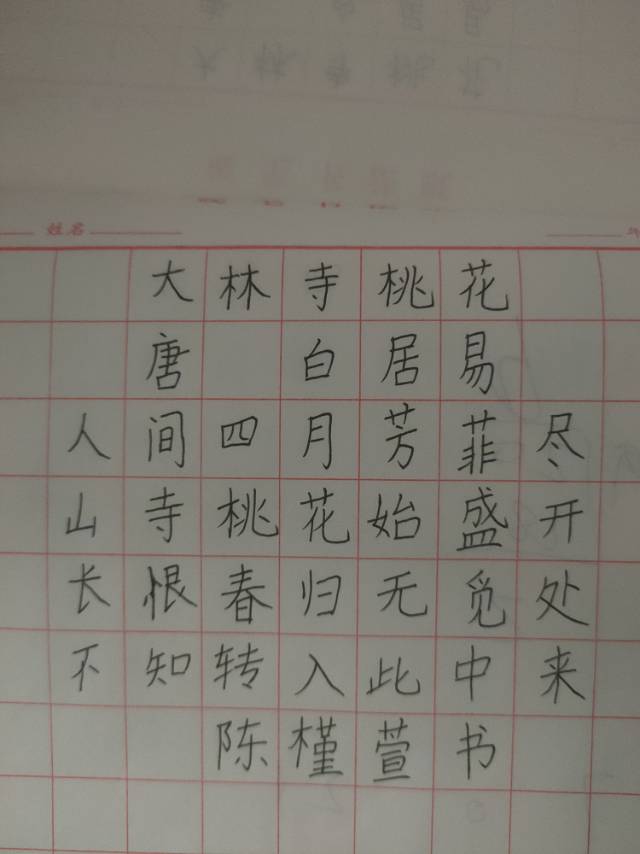 姓名
大林寺桃花
唐 白居易
人间四月芳菲尽
山寺桃花始盛开
长恨春归无觅处
不知转入此中来
陈槿萱书